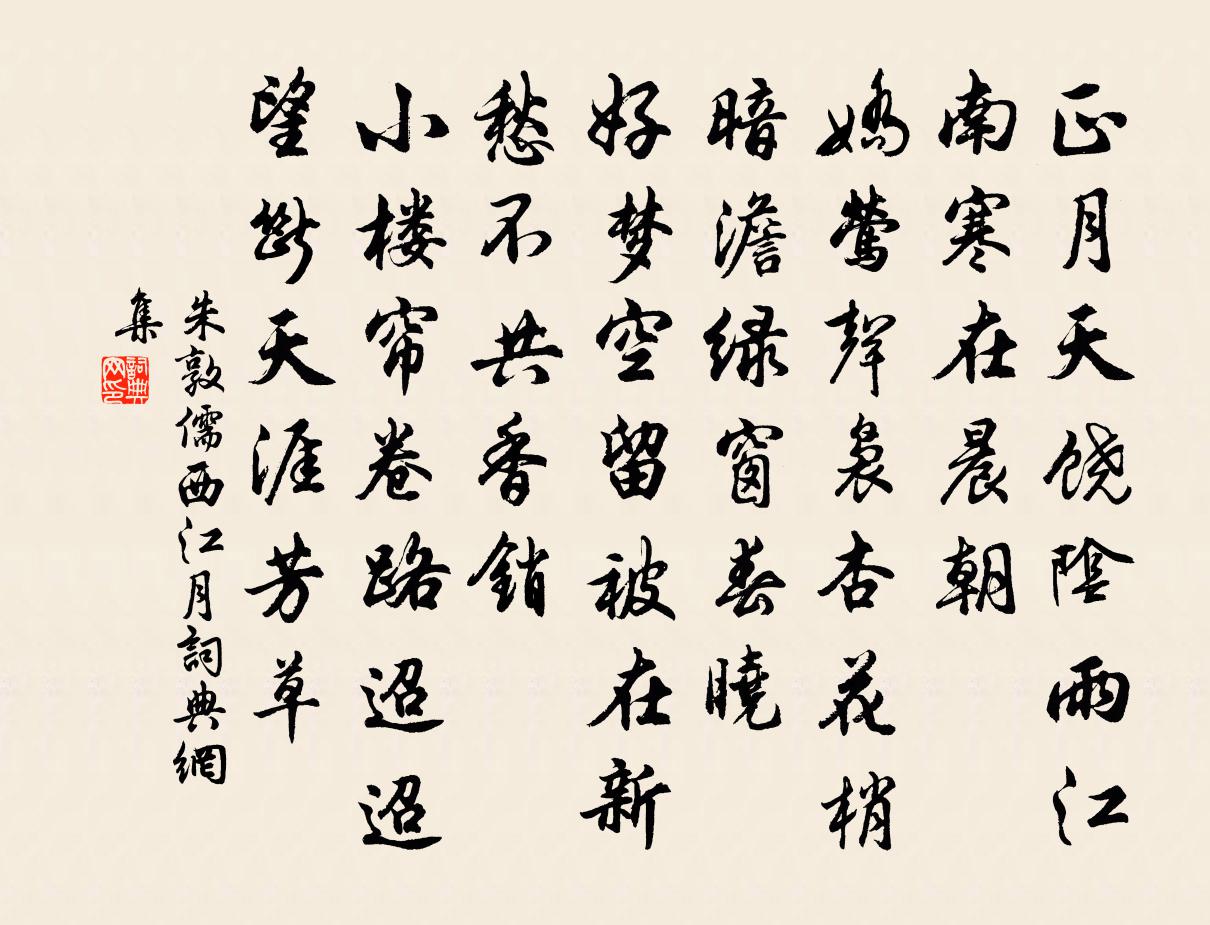 正月天饶陰雨江
南寒在晨朝
嬌鶯聲裊杏花梢
暗澹绿窗春曉
好梦空留被在新
愁不共香銷
小楼帘卷路迢迢
望斷天涯芳草
朱敦儒西江月詞典網
集
詞典
网印